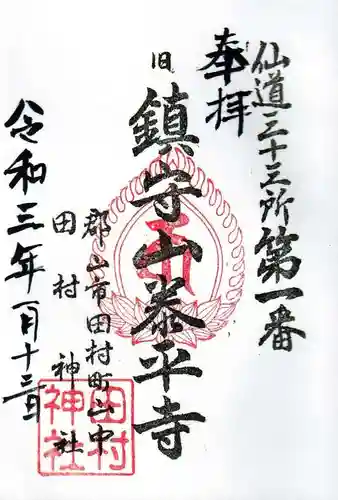 奉拝
仙道三十三所第一番
旧
鎮守山泰平寺
郡山市田村町山中
田村神社
令和三年一月十三日
田村
神社